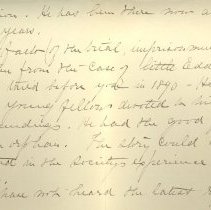 He has been there now a
years.
facts of the trial, imprisonment
from the case of little Eddie
tried before you in 1890 - He
young fellows devoted to his
He had the good
orphan. The story could
in the Society's experience
have not heard the latest